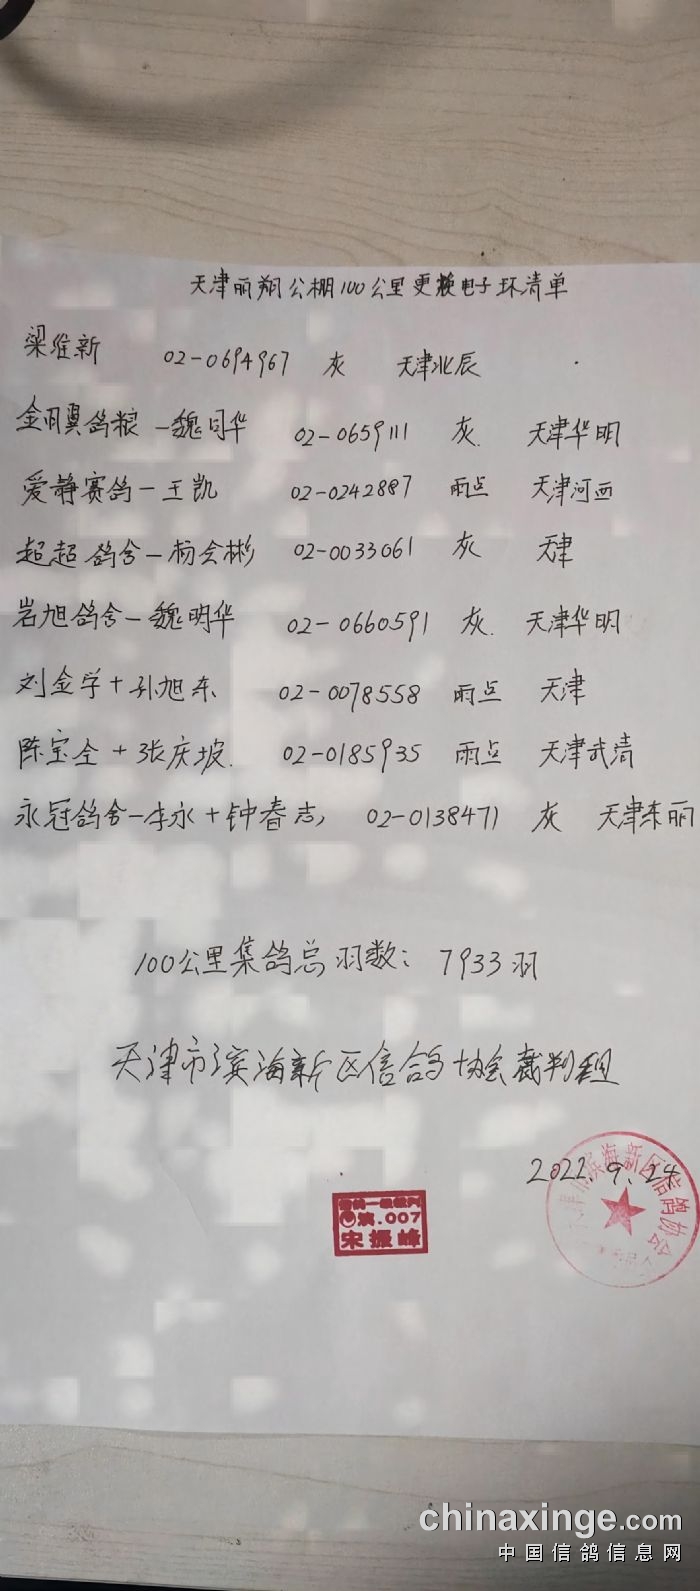 天津丽翔公棚100公里更换电子环清单
梁维新 02-0694967 灰 天津北辰
金羽翼鸽粮-魏同华 02-0659111 灰. 天津华明
爱静赛鸽-王凯 02-0242887 雨点 天津河西
超超鸽舍-杨会彬 02-0033061 灰 天津
岩旭鸽舍-魏明华 02-0660591 灰. 天津华明
刘金学+孙旭东 02-0078558 雨点 天津
陈宝全+张庆坡. 02-0185935 雨点 天津武清
永冠鸽舍-李永+钟春志 02-0138471 灰 天津东丽
100公里集鸽总羽数: 7933羽
天津市滨海新区信鸽协会裁判组
2022.9.24
天津市滨海新区信鸽协会
信鸽一级裁判
滨.007
宋振峰
chinaxinge.com
中国信鸽信息网